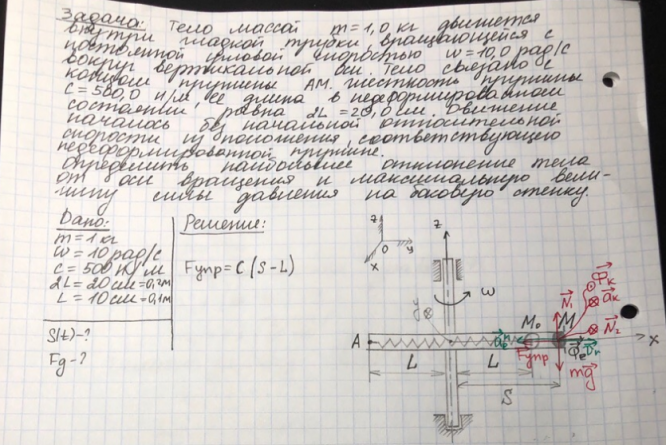 Задача: Тело массой m = 1,0 кг движется
внутри гладкой трубки вращающейся с
постоянной угловой скоростью ω = 10,0 рад/с
вокруг вертикальной оси. Тело связано с
концом пружины АМ. жесткость пружины
c = 500,0 н/м, её длина в недеформированном
состоянии равна 2L = 20,0 см. Движение
началось без начальной относительной
скорости из положения, соответствующего
недеформированной пружине.
определить наибольшее отклонение тела
от оси вращения и максимальную вели-
чину силы давления на боковую стенку.
Дано:
m = 1 кг
ω = 10 рад/с
c = 500 Н/м
2L = 20 см = 0,2м
L = 10 см = 0,1м
S(t) - ?
Fg - ?
Решение:
Fупр = C (S - L)
z
O
y
x
z
ω
y
A
M₀
M
N₁
Φк
aк
N₂
x
Fупр
Φe
mg
L
L
S